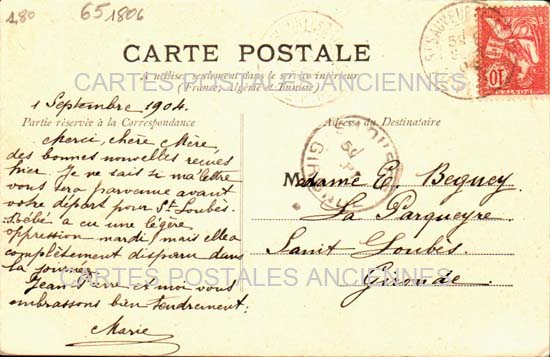 480
651806
CARTE POSTALE
A utiliser seulement dans le service intérieur
(France, Algérie et Tunisie)
CARTES POSTALES ANCIENNES
1 Septembre 1904.
Partie réservée à la Correspondance
Adresse du Destinataire
Merci, chère Mère,
des bonnes nouvelles reçues
hier. Je ne sais si ma lettre
vous sera parvenue avant
votre départ pour St Loubès.
Bébé a eu une légère
oppression mardi, mais elle a
complètement disparu dans
la journée.
Jean Pierre et moi vous
embrassons bien tendrement.
Marie
Madame E. Beguey
La Parqueyre
Saint Loubès
Gironde
CARTES POSTALES ANCIENNES
10